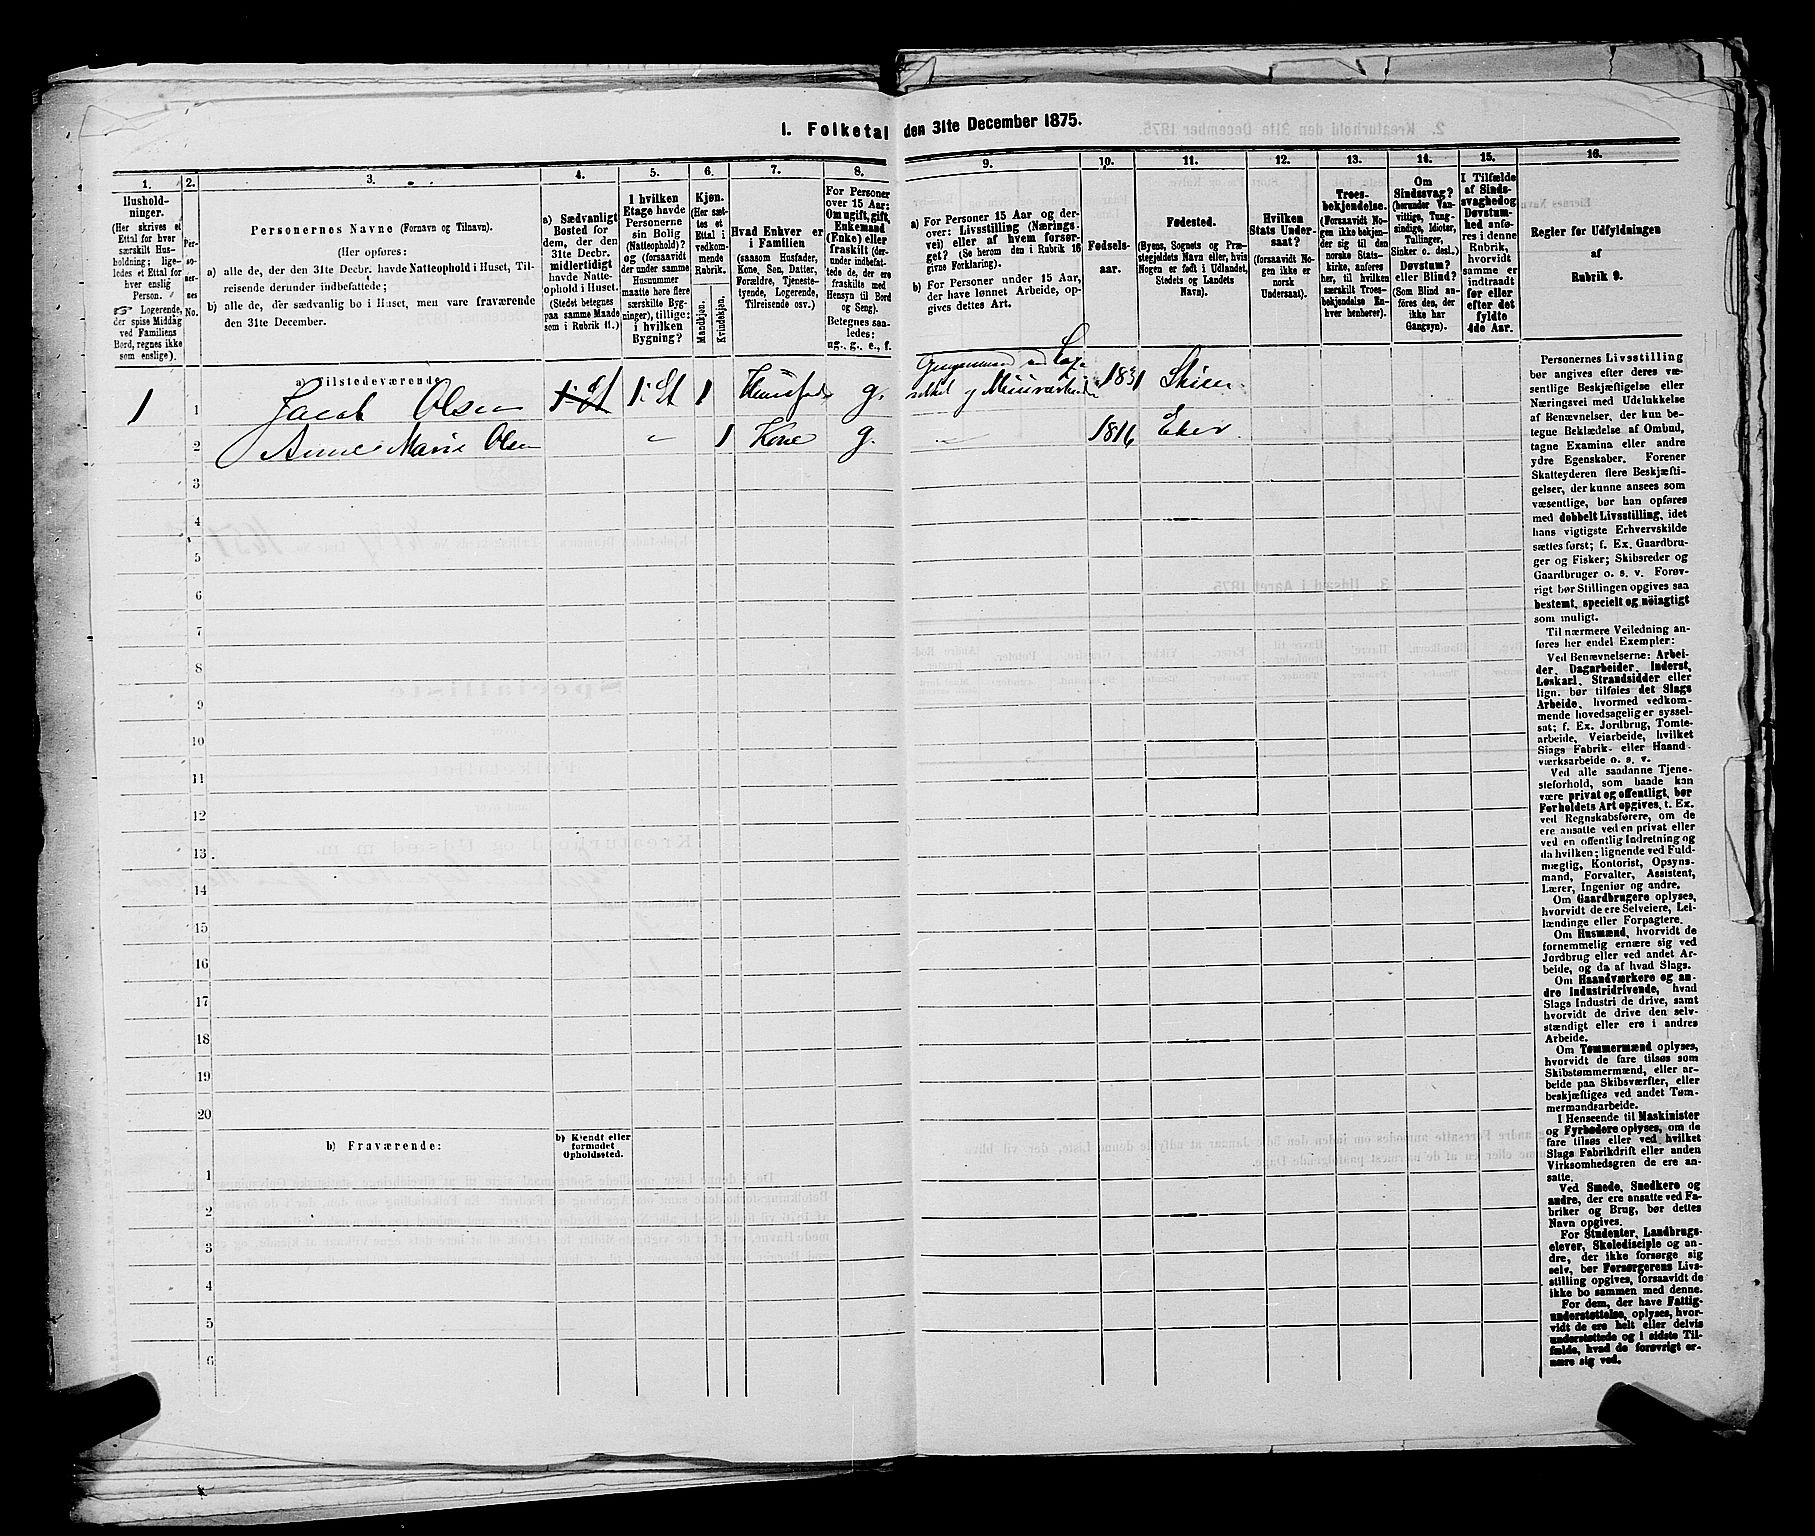 1. Folketal den 31te December 1875.
1.
2.
3.
4.
5.
6.
7.
8.
9.
10.
11.
12.
13.
14.
15.
16.
Hushold-
ninger.
(Her skrives et
Ettal for hver
særskilt Hus-
holdning; lige-
ledes et Ettal for
hver enslig
Person.
☞ Logerende,
der spise Middag
ved Familiens
Bord, regnes ikke
som enslige).
Per-
so-
ner-
nes
No.
Personernes Navne (Fornavn og Tilnavn).
(Her opføres:
a) alle de, der den 31te Decbr. havde Natteophold i Huset, Til-
reisende derunder indbefattede;
b) alle de, der sædvanlig bo i Huset, men vare fraværende
den 31te December.
a) Sædvanligt
Bosted for
dem, der den
31te Decbr.
midlertidigt
havde Natte-
ophold i Huset.
(Stedet betegnes
paa samme Maade
som i Rubrik 11.)
I hvilken
Etage havde
Personerne
sin Bolig
(Natteophold)?
og (forsaavidt
der under samme
Husnummer
maatte høre flere
særskilte Byg-
ninger), tillige:
i hvilken
Bygning?
Kjøn.
(Her sæt-
tes et
Ettal i
vedkom-
mende
Rubrik.
Mandkjøn.
Kvindekjøn.
Hvad Enhver er
i Familien
(saasom Husfader,
Kone, Søn, Datter,
Forældre, Tjeneste-
tyende, Logerende,
Tilreisende osv.)
For Personer
over 15 Aar:
Om ugift, gift,
Enkemand
(Enke) eller
fraskilt (der-
under indbefat-
tede de, der ere
fraskilte med
Hensyn til Bord
og Seng).
Betegnes saa-
ledes:
ug., g., e., f.
a) For Personer 15 Aar og der-
over: Livsstilling (Nærings-
vei) eller af hvem forsør-
get? (Se herom den i Rubrik 16
givne Forklaring).
b) For Personer under 15 Aar,
der have lønnet Arbeide, op-
gives dettes Art.
Fødsels-
aar.
Fødested.
(Byens, Sognets og Præ-
stegjeldets Navn eller, hvis
Nogen er født i Udlandet,
Stedets og Landets
Navn).
Hvilken
Stats Under-
saat?
(forsaavidt No-
gen ikke er
norsk
Undersaat).
Troes-
bekjendelse.
(Forsaavidt No-
gen ikke bekjen-
der sig til den
norske Stats-
kirke, anføres
her, til hvilken
særskilt Troes-
bekjendelse En-
hver henhører).
Om
Sindssvag?
(herunder Van-
vittige, Tung-
sindige, Idioter,
Tullinger,
Sinker o. desl.)
Døvstum?
eller Blind?
(Som Blind an-
føres den, der
ikke har
Gangsyn).
I Tilfælde
af Sinds-
svaghed og
Døvstum-
hed anfø-
res i denne
Rubrik,
hvorvidt
samme er
indtraadt
før eller
efter det
fyldte
4de Aar.
Regler for Udfyldningen
af
Rubrik 9.
a) Tilstedeværende
1
1
Jacob Olsen
1: Et
1: Et
1
Huusfader
g.
og Muurarbeider
1831
Skien
2
Anne Marie Olsen
"
1
Kone
g.
"
1816
Eker
3
4
5
6
7
8
9
10
11
12
13
14
15
16
17
18
19
20
b) Fraværende:
b) Kjendt eller
formodet
Opholdssted.
1
2
3
4
5
6
Personernes Livsstilling
bør angives efter deres væ-
sentlige Beskjæftigelse eller
Næringsvei med Udelukkelse
af Benævnelser, der kun be-
tegne Beklædelse af Ombud,
tagne Examina eller andre
ydre Egenskaber. Forener
Skatteyderen flere Beskjæfti-
gelser, der kunne ansees som
væsentlige, bør han opføres
med dobbelt Livsstilling, idet
hans vigtigste Erhvervskilde
sættes først; f. Ex. Gaardbru-
ger og Fisker; Skibsreder og
Gaardbruger o. s. v. Forøv-
rigt bør Stillingen opgives saa
bestemt, specielt og nøiagtigt
som muligt.
Til nærmere Veiledning an-
føres her endel Exempler:
Ved Benævnelserne: Arbei-
der, Dagarbeider, Inderst,
Løskarl, Strandsidder eller
lign. bør tilføies det Slags
Arbeide, hvormed vedkom-
mende hovedsagelig er syssel-
sat; f. Ex. Jordbrug, Tomte-
arbeide, Veiarbeide, hvilket
Slags Fabrik- eller Haand-
værksarbeide o. s. v.
Ved alle saadanne Tjene-
steforhold, som baade kan
være privat og offentligt, bør
Forholdets Art opgives, t. Ex.
ved Regnskabsførere, om de
ere ansatte ved en privat eller
ved en offentlig Indretning og
da hvilken; lignende ved Fuld-
mægtig, Kontorist, Opsyns-
mand, Forvalter, Assistent,
Lærer, Ingeniør og andre.
Om Gaardbrugere oplyses,
hvorvidt de ere Selveiere, Lei-
lændinge eller Forpagtere.
Om Husmænd, hvorvidt de
fornemmelig ernære sig ved
Jordbrug eller ved andet Ar-
beide, og da af hvad Slags.
Om Haandværkere og an-
dre Industridrivende, hvad
Slags Industri de drive, samt
hvorvidt de drive den selv-
stændigt eller ere i andres
Arbeide.
Om Tømmermænd oplyses,
hvorvidt de fare tilsøs som
Skibstømmermænd, eller ar-
beide paa Skibsværfter, eller
beskjæftiges ved andet Tøm-
mermandsarbeide.
I Henseende til Maskinister
og Fyrbødere oplyses, om de
fare tilsøs eller ved hvilket
Slags Fabrikdrift eller anden
Virksomhedsgren de ere an-
satte.
Ved Smede, Snedkere og
andre, der ere ansatte ved Fa-
briker og Brug, bør dettes
Navn opgives.
For Studenter, Landbrugs-
elever, Skoledisciple og an-
dre, der ikke forsørge sig
selv, bør Forsørgerens Livs-
stilling opgives, forsaavidt de
ikke bo sammen med denne.
For dem, der have Fattig-
understøttelse, oplyses, hvor-
vidt de ere helt eller delvis
understøttede og i sidste Til-
fælde, hvad de forøvrigt er-
nære sig ved.